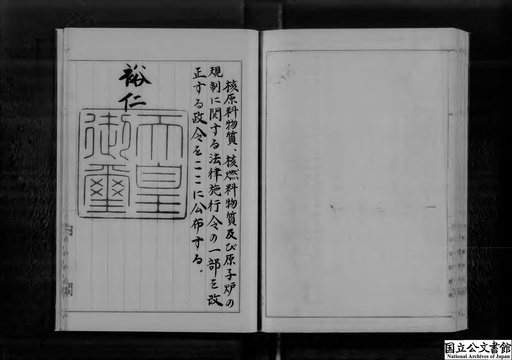 核原料物質、核燃料物質及び原子炉の
規制に関する法律施行令の一部を改
正する政令をここに公布する。
裕仁
天皇
御璽
内閣
国立公文書館
National Archives of Japan